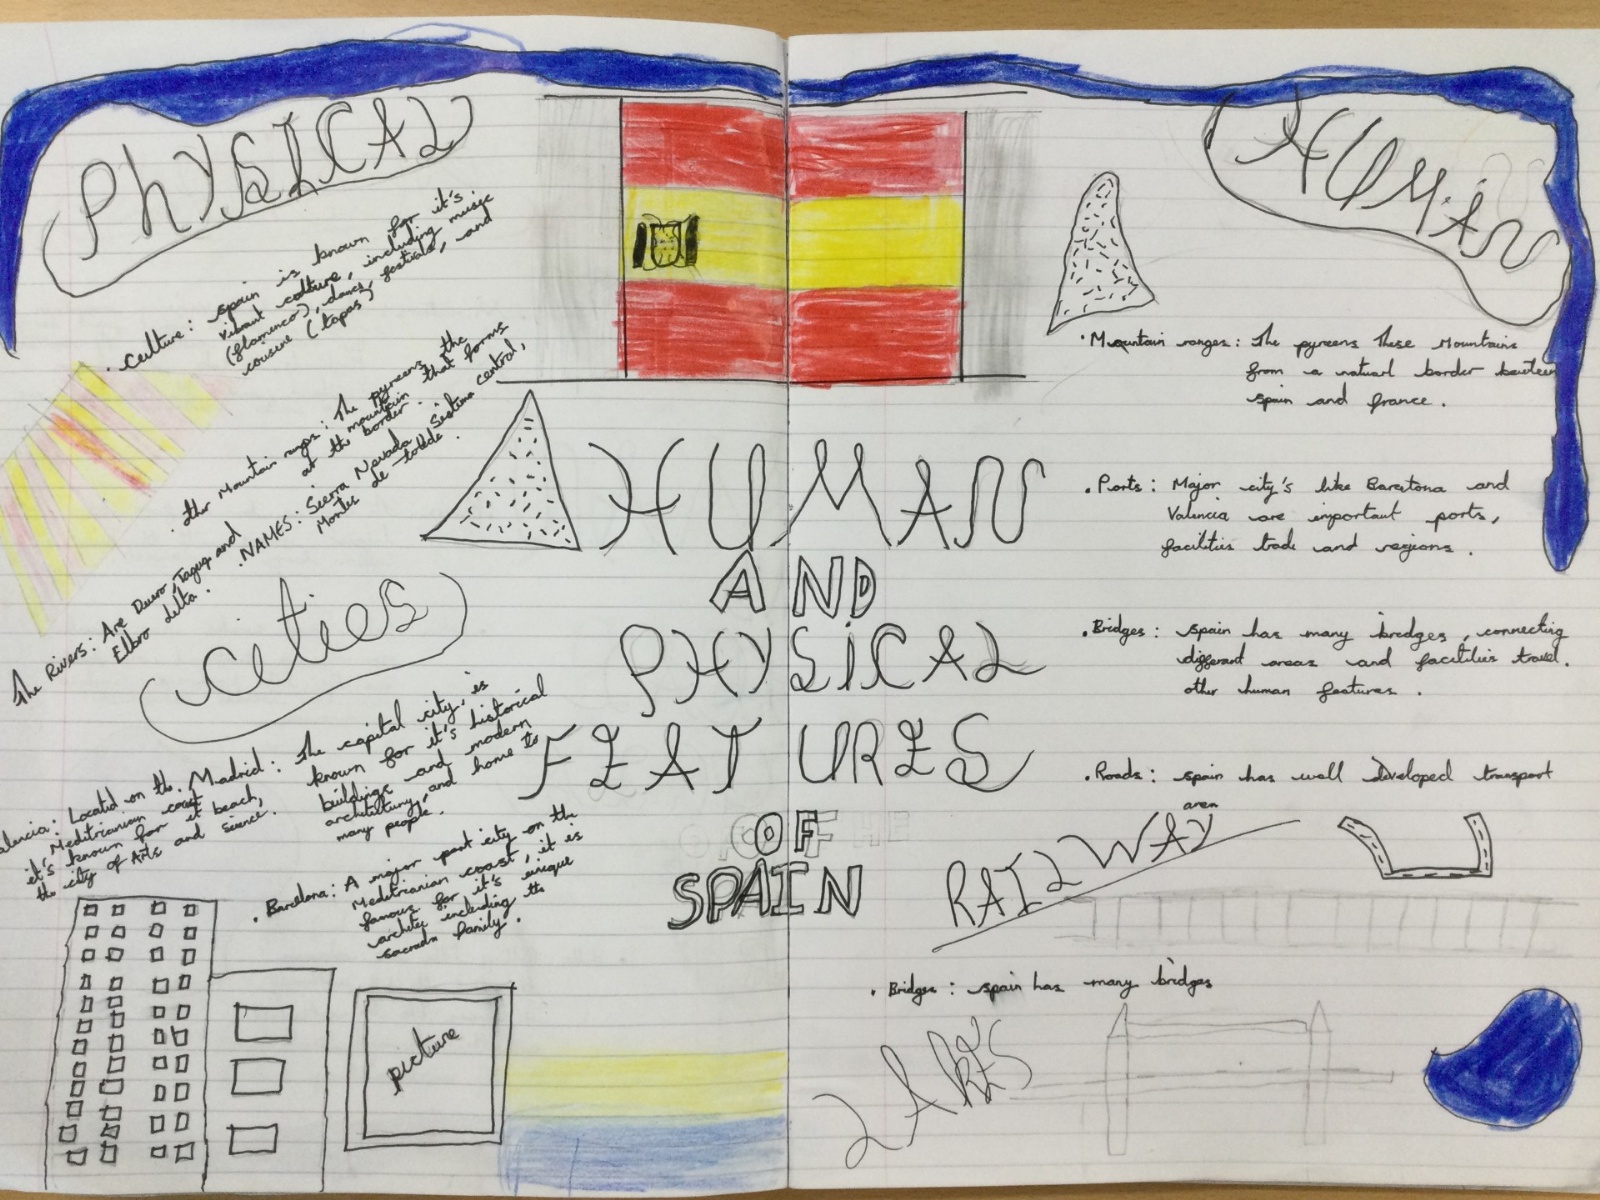 PhYSICAL
. Culture: spain is known for it's
vibrant colture, including music
(flamenco), dance, festivals, and
cousine (tapas)
. ther Mountain ranges: The pyreens, the
mountain that forms
at the border.
. NAMES: Sierra Nevada Sistema central,
Montes de toledo.
The Rivers: Are Duero, Tagus and
Elbro delta.
cities
. Madrid: The capital city, is
known for it's historical
buildings and modern
architiltury, and home to
many people.
alencia: Located on the
Meditrianian coast
it's known for it beach,
the city of Arts and science.
. Barcelona: A major port city on the
Meditrianian coast, it is
famous for it's unique
archite including the
sacrada family.
picture
HUMAN
AND
PHYSICAL
FEATURES
OF
SPAIN
HUMAN
. Mountain ranges: The pyreens These Mountains
from a naturl border bauteen
spain and france.
. Ports: Major city's like Barcelona and
Valencia are important ports,
facilities trade and regions.
. Bridges: spain has many bridges, connecting
different areas and facilities travel.
other human features.
. Roads: spain has wall developed transport
area
RAILWAY
. Bridges: spain has many bridges
LAKES